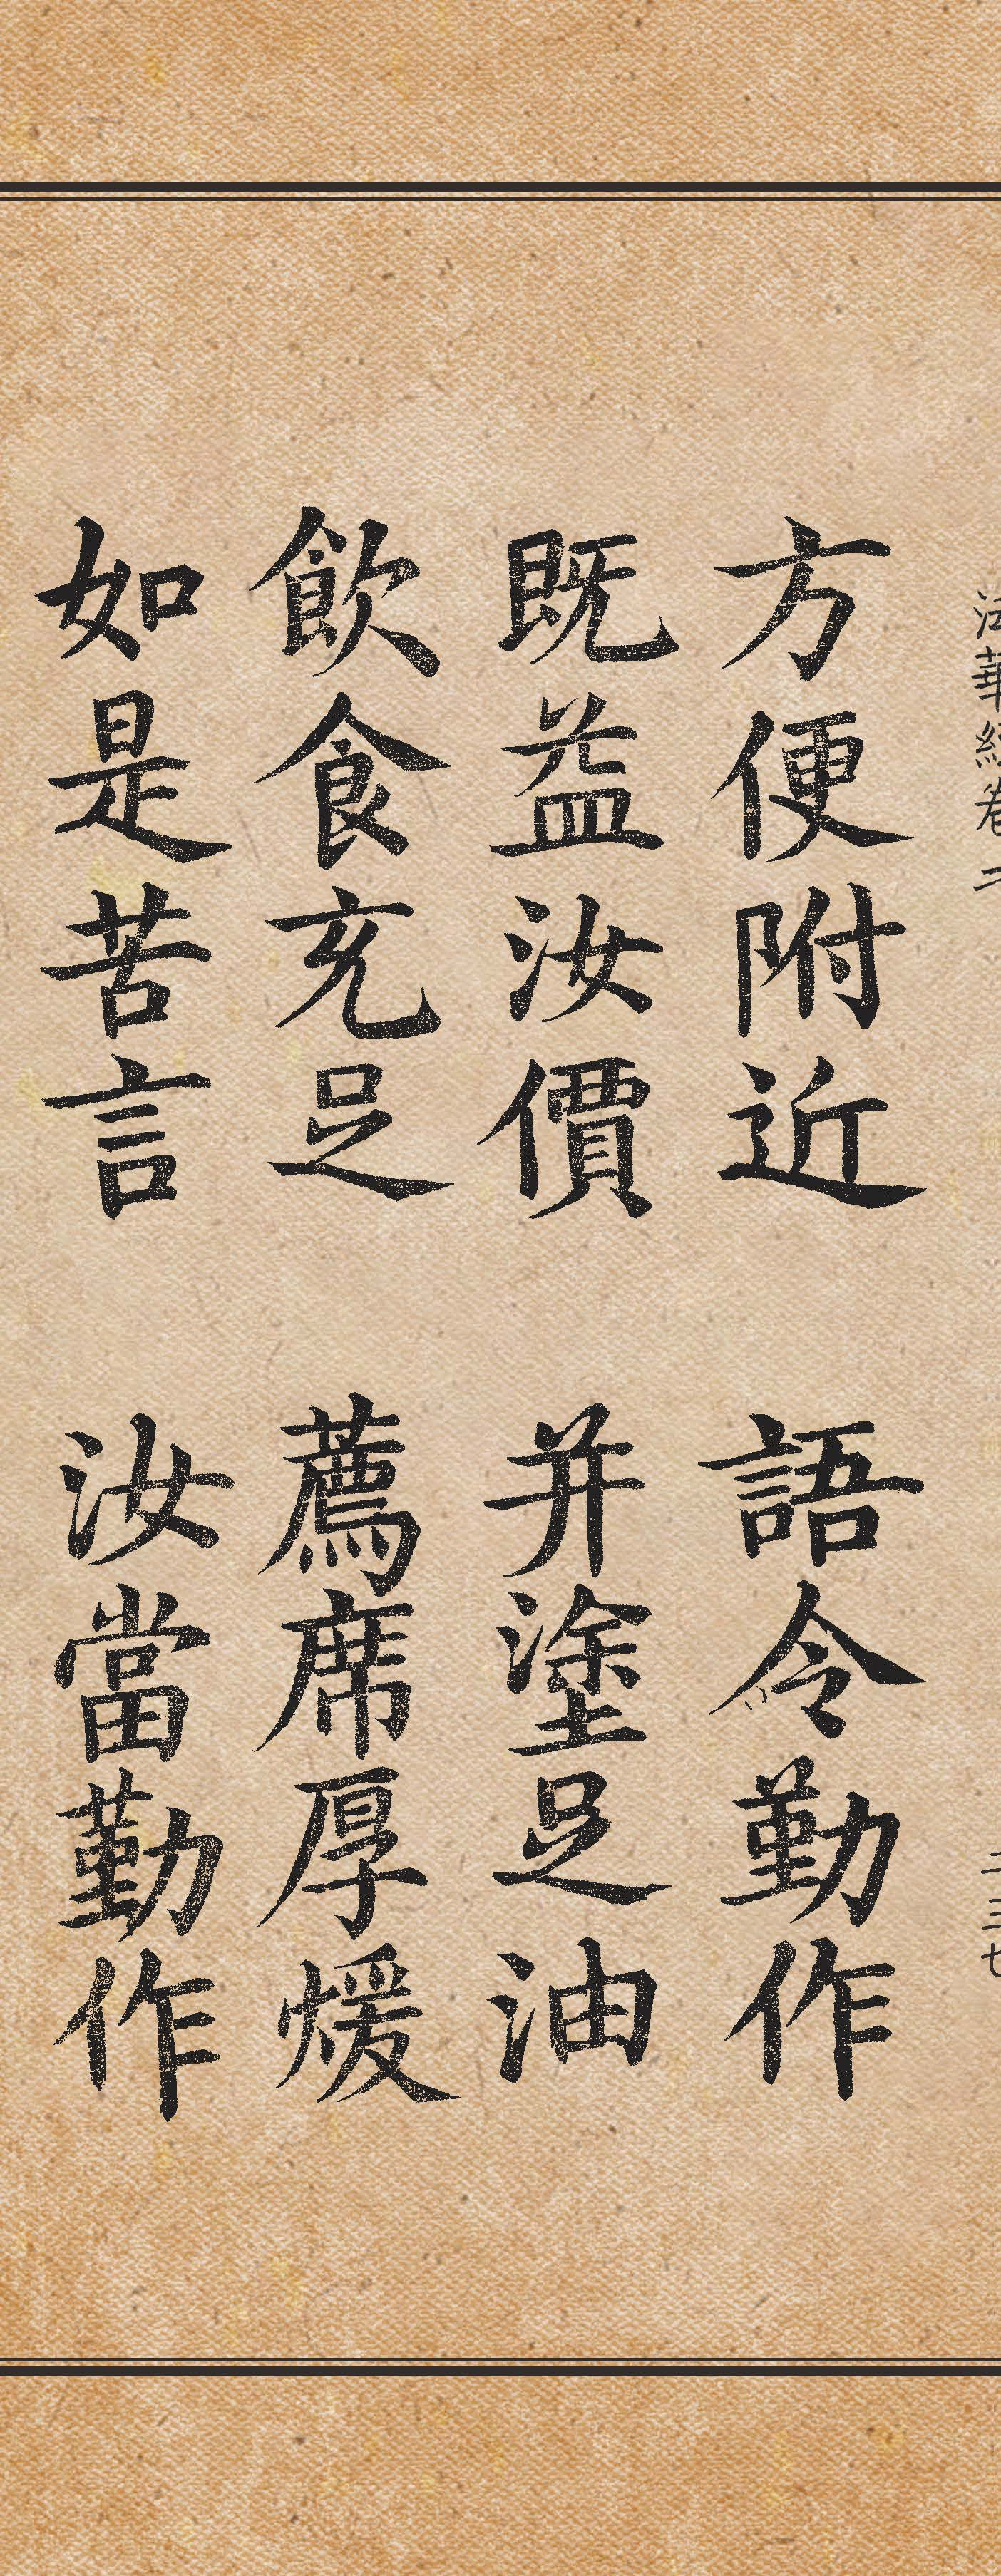 法華經卷二 二三七
方便附近 語令勤作
既益汝價 并塗足油
飲食充足 薦席厚煖
如是苦言 汝當勤作